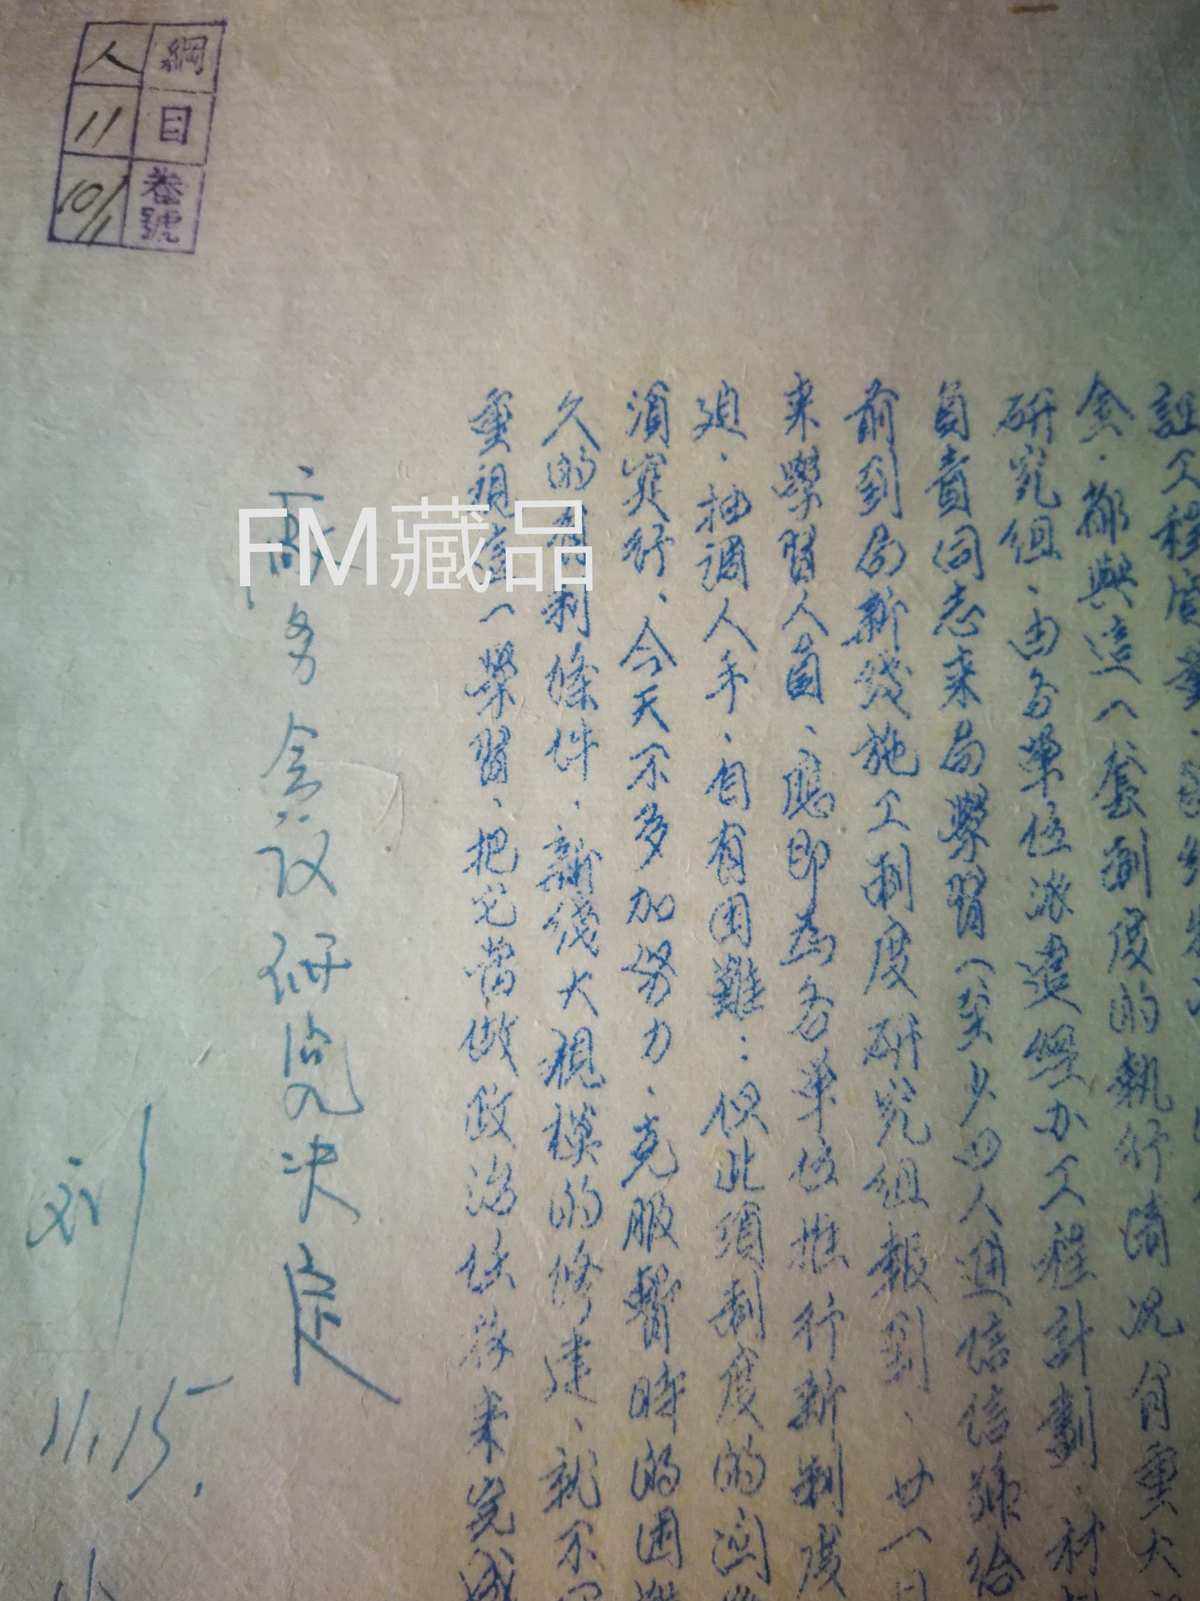 証工程質量
會，都與這一套制度的執行情况有重大
研究組，由各單位派遣經办工程計劃，材
負責同志来局學習（至少四人通信信號給
前到局新线施工制度研究組報到，廿一日
来學習人員，應即為各單位推行新制度
迫，抽調人手，自有困難：但此項制度的
須实行，今天不多加努力，克服暫時的困難
久的有利條件，新线大規模的修建，就不
重視這一學習，把它當做政治任務来完成
務会议研究决定
刘
11.15.
綱 人
目 11
卷號 10/11
FM藏品